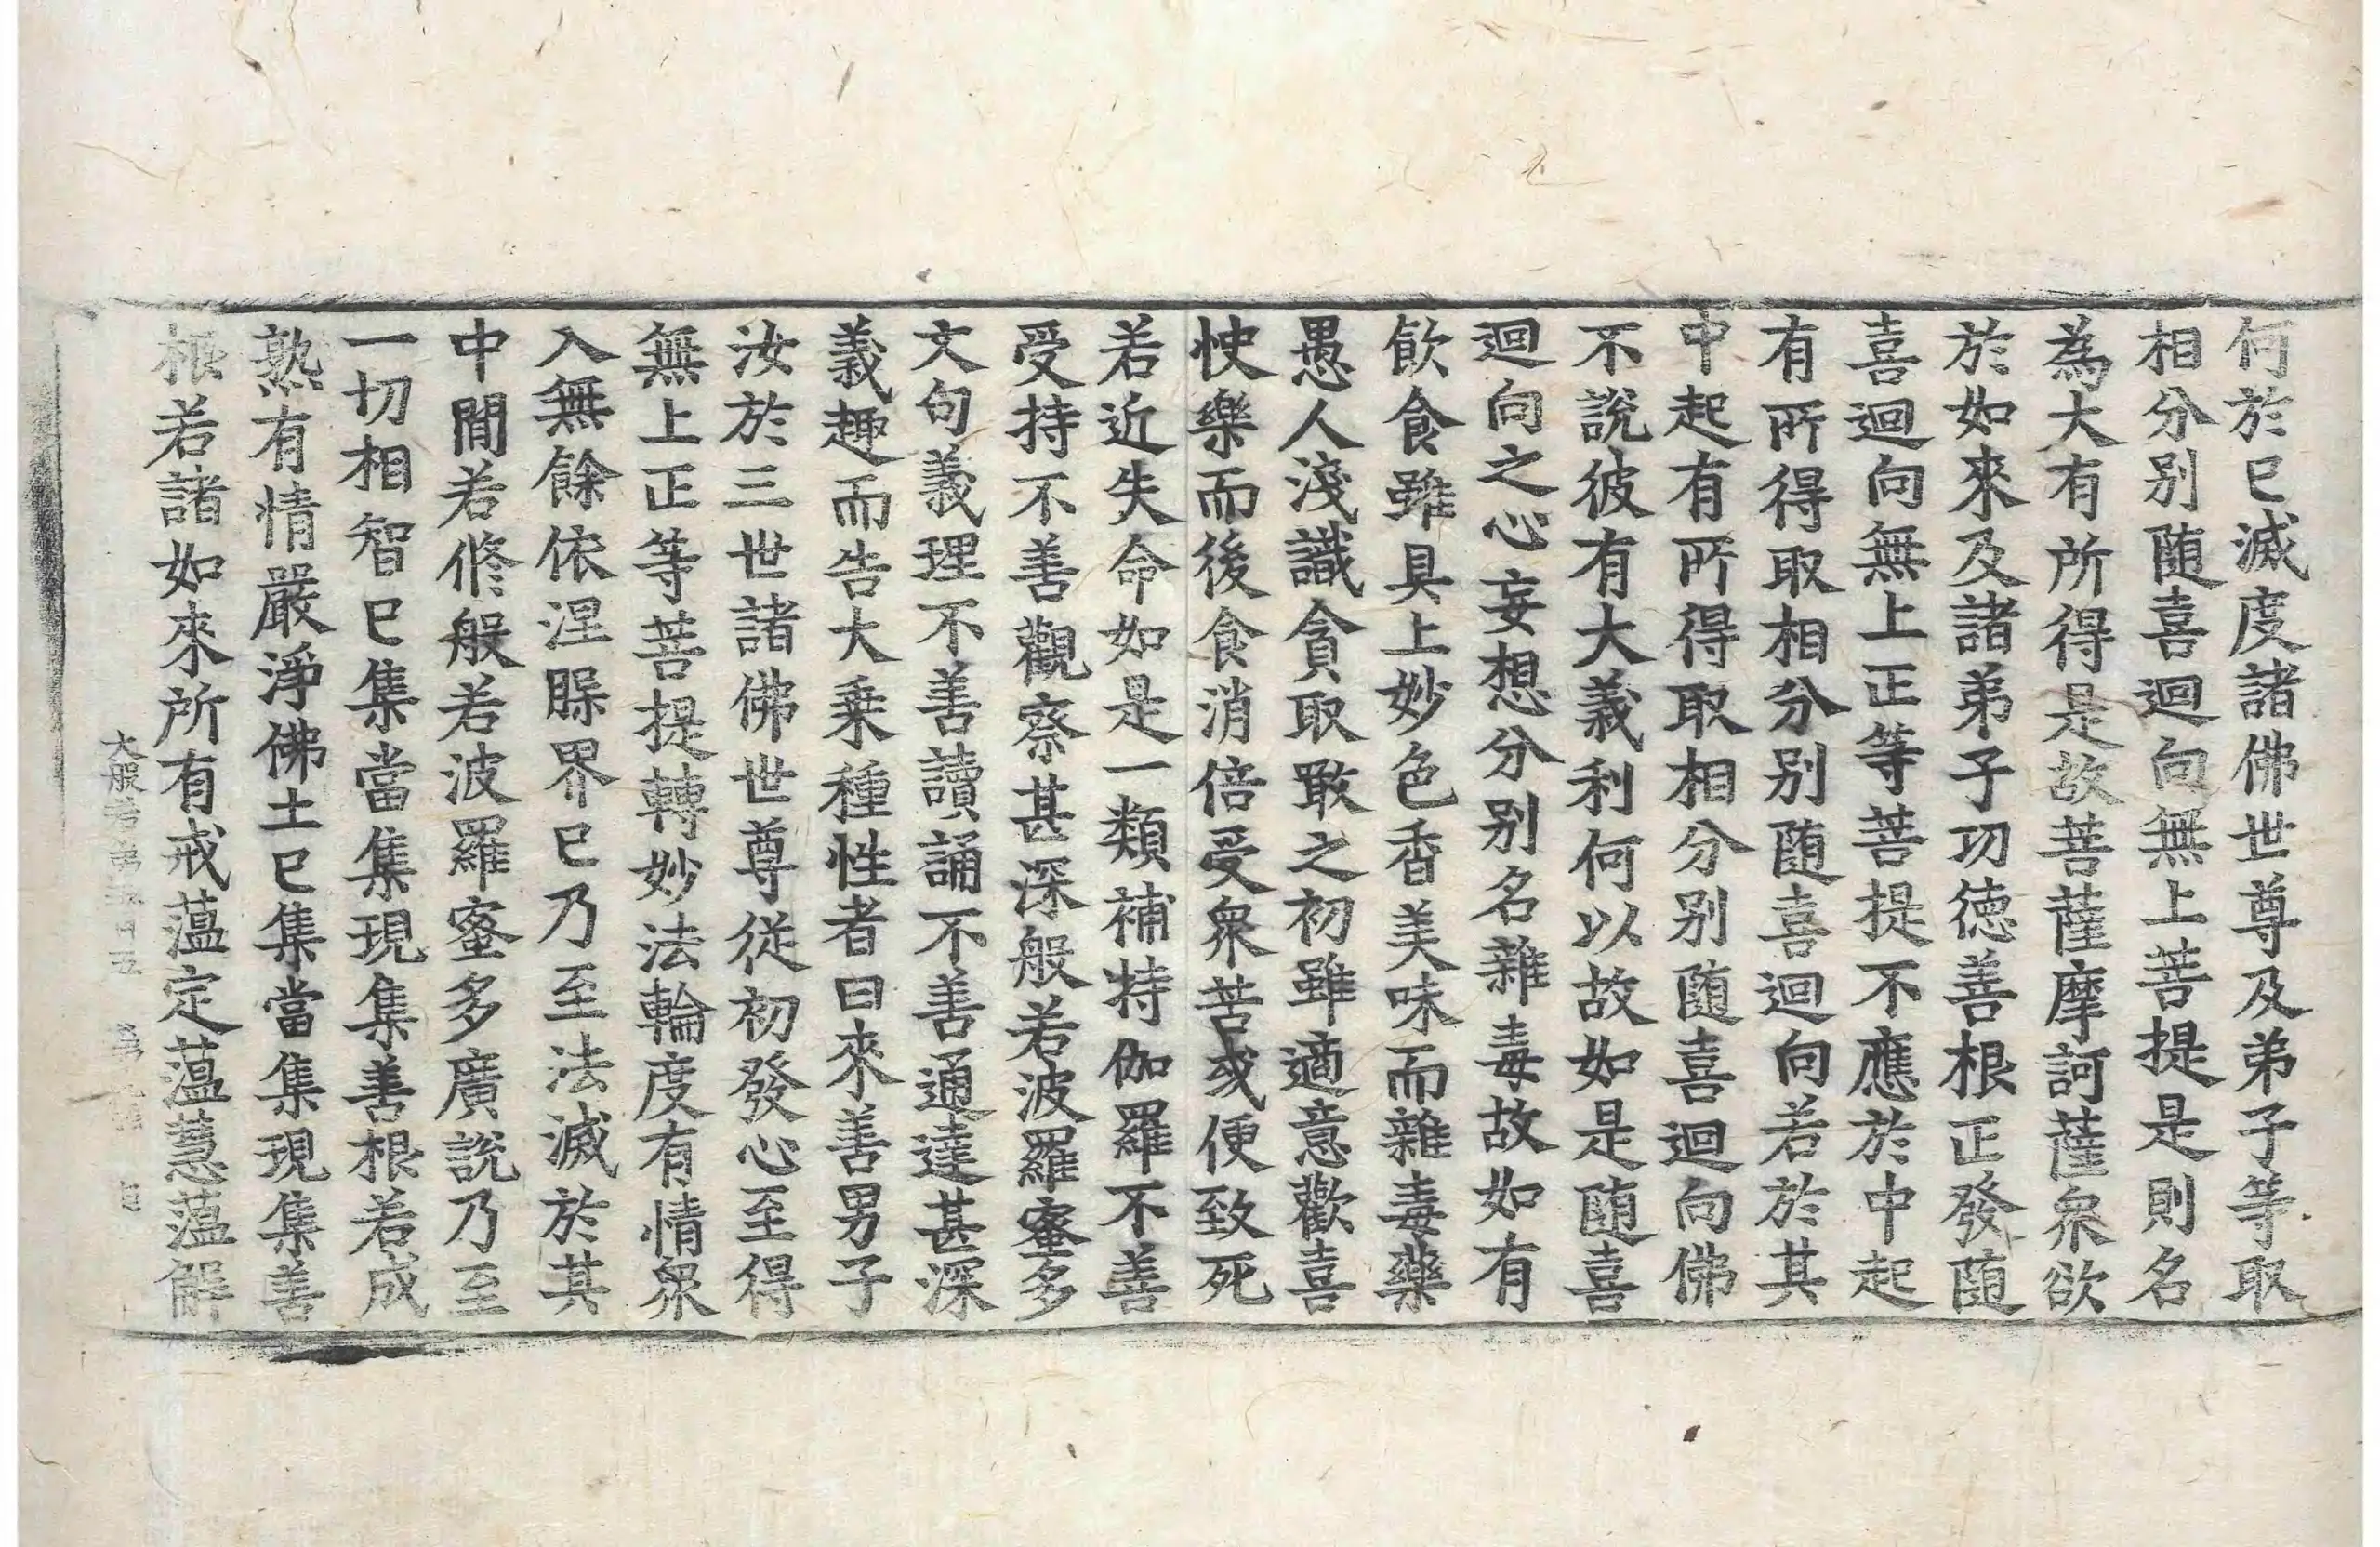 何於已滅度諸佛世尊及弟子等取
相分别随喜迴向無上菩提是則名
為大有所得是故菩薩摩訶薩衆欲
於如來及諸弟子功德善根正發随
喜迴向無上正等菩提不應於中起
有所得取相分别随喜迴向若於其
中起有所得取相分别随喜迴向佛
不說彼有大義利何以故如是随喜
迴向之心妄想分别名雜毒故如有
飮食雖具上妙色香美味而雜毒藥
愚人淺識貪取噉之初雖適意歡喜
快樂而後食消倍受衆苦或便致死
若近失命如是一類補特伽羅不善
受持不善觀察甚深般若波羅蜜多
文句義理不善讀誦不善通達甚深
義趣而告大乗種性者曰來善男子
汝於三世諸佛世尊從初發心至得
無上正等菩提轉妙法輪度有情衆
入無餘依涅槃界已乃至法滅於其
中間若修般若波羅蜜多廣說乃至
一切相智已集當集現集善根若成
熟有情嚴淨佛土已集當集現集善
根若諸如來所有戒蕴定蕴慧蕴解
大般若